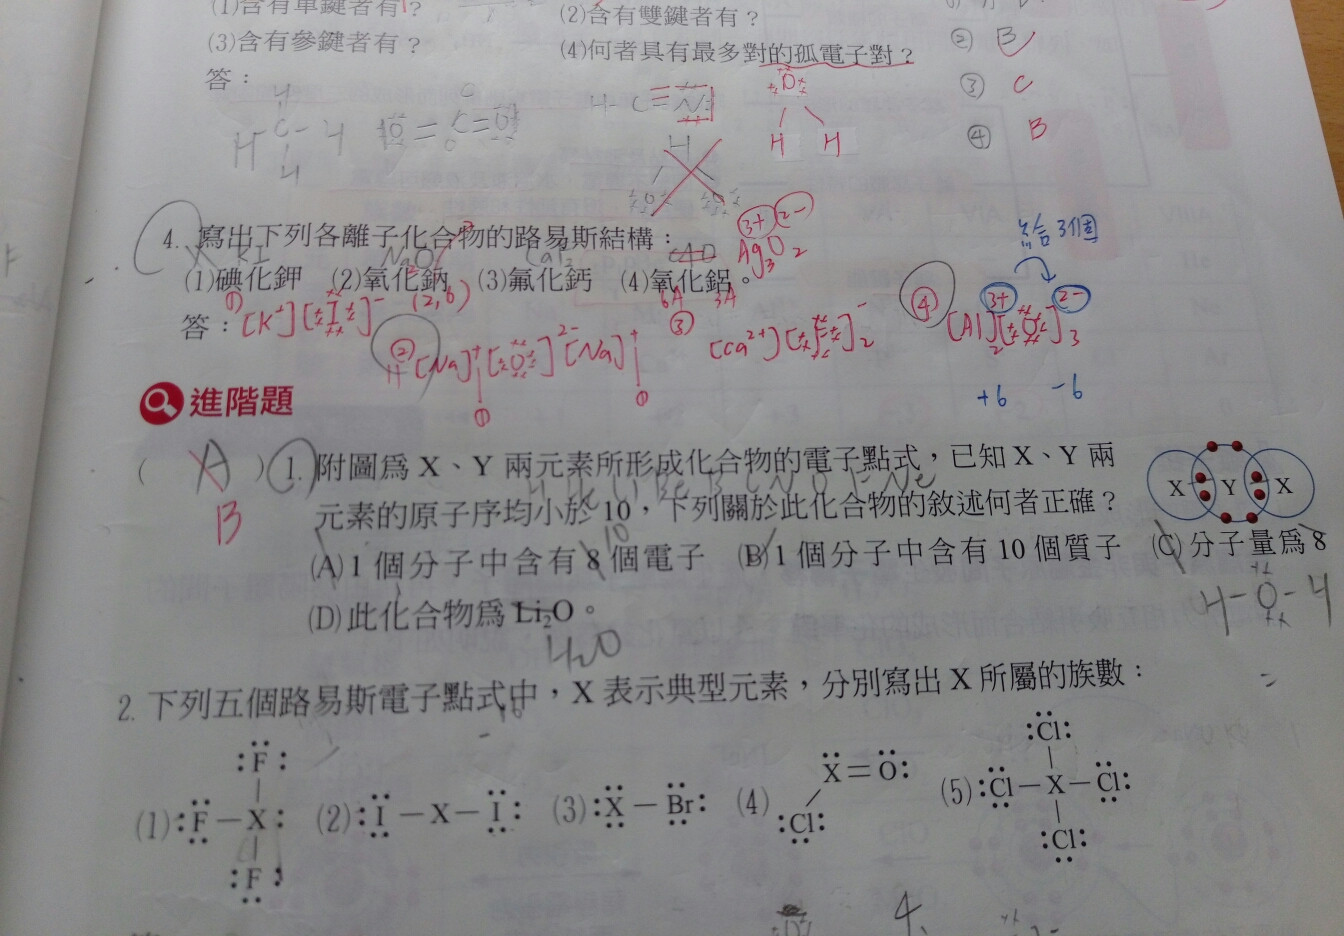 (1)含有單鍵者有？ (2)含有雙鍵者有？
(3)含有參鍵者有？ (4)何者具有最多對的孤電子對？
② B
答：
③ C
④ B
H-C≡N
H H
4. 寫出下列各離子化合物的路易斯結構：
3+ 2-
給3個
(1)碘化鉀 (2)氧化鈉 (3)氟化鈣 (4)氧化鋁。
答：① [K⁺][I]⁻ (2,6) 6A 3A
② [Na]⁺[O]²⁻[Na]⁺ ③ [Ca²⁺][F]₂⁻ ④ [Al]₂³⁺[O]₃²⁻
① ① +6 -6
進階題
( A ) 1. 附圖為 X、Y 兩元素所形成化合物的電子點式，已知 X、Y 兩
B
元素的原子序均小於 10，下列關於此化合物的敘述何者正確？
X Y X
10
(A) 1 個分子中含有 8 個電子 (B) 1 個分子中含有 10 個質子 (C) 分子量為 8
H-O-H
(D) 此化合物為 Li₂O。
H₂O
2. 下列五個路易斯電子點式中，X 表示典型元素，分別寫出 X 所屬的族數：
(1) F－X F F
(2) I－X－I
(3) X－Br
(4) X＝O Cl
(5) Cl－X－Cl Cl Cl
4